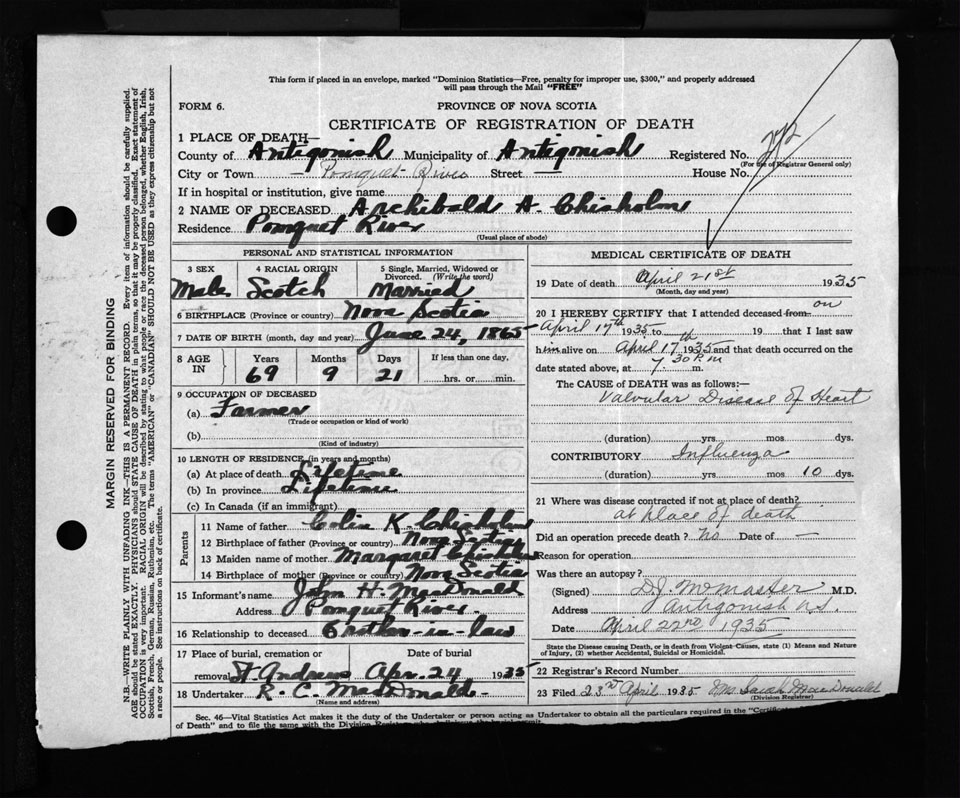 This form if placed in an envelope, marked "Dominion Statistics—Free, penalty for improper use, $300," and properly addressed
will pass through the Mail "FREE"
FORM 6.
PROVINCE OF NOVA SCOTIA
CERTIFICATE OF REGISTRATION OF DEATH
1 PLACE OF DEATH—
County of Antigonish Municipality of Antigonish Registered No. 272
(For use of Registrar General only)
City or Town Pomquet River Street House No.
If in hospital or institution, give name
2 NAME OF DECEASED Archibald A. Chisholm
Residence Pomquet River
(Usual place of abode)
PERSONAL AND STATISTICAL INFORMATION
3 SEX 4 RACIAL ORIGIN 5 Single, Married, Widowed or
Divorced. (Write the word)
Male Scotch Married
6 BIRTHPLACE (Province or country) Nova Scotia
7 DATE OF BIRTH (month, day and year) 24, 1865
8 AGE IN Years Months Days If less than one day,
69 9 21 hrs. or min.
9 OCCUPATION OF DECEASED
(a) Farmer
(Trade or occupation or kind of work)
(b)
(Kind of industry)
10 LENGTH OF RESIDENCE (in years and months)
(a) At place of death Lifetime
(b) In province Lifetime
(c) In Canada (if an immigrant)
Parents
11 Name of father Colin K. Chisholm
12 Birthplace of father (Province or country) Nova Scotia
13 Maiden name of mother Margaret Chisholm
14 Birthplace of mother (Province or country) Nova Scotia
15 Informant's name John H. MacDonald
Address Pomquet River
16 Relationship to deceased Brother-in-law
17 Place of burial, cremation or Date of burial
removal St Andrews Apr. 24 1935
18 Undertaker R. C. MacDonald
(Name and address)
MEDICAL CERTIFICATE OF DEATH
19 Date of death April 21st 1935
(Month, day and year)
20 I HEREBY CERTIFY that I attended deceased from on
April 17th 1935 to 19 that I last saw
him alive on April 17th 1935 and that death occurred on the
date stated above, at 7.30 P.m m.
The CAUSE OF DEATH was as follows:—
Valvular Disease of Heart
(duration) yrs. mos dys.
CONTRIBUTORY Influenza
(duration) yrs mos 10 dys.
21 Where was disease contracted if not at place of death?
at place of death
Did an operation precede death? no Date of —
Reason for operation
Was there an autopsy?
(Signed) McMaster M.D.
Address Antigonish N.S.
Date April 22nd 1935
State the Disease causing Death, or in death from Violent Causes, state (1) Means and Nature
of Injury, (2) whether Accidental, Suicidal or Homicidal.
22 Registrar's Record Number
23 Filed 23rd April 1935 Mrs Sarah MacDonald
(Division Registrar)
Sec. 46—Vital Statistics Act makes it the duty of the Undertaker or person acting as Undertaker to obtain all the particulars required in the "Certificate
of Death" and to file the same with the Division Registrar
MARGIN RESERVED FOR BINDING
N.B.—WRITE PLAINLY WITH UNFADING INK—THIS IS A PERMANENT RECORD. Every item of information should be carefully supplied.
AGE should be stated EXACTLY. PHYSICIANS should STATE CAUSE OF DEATH in plain terms, so that it may be properly classified. Exact statement of
OCCUPATION is very important. RACIAL ORIGIN will be described by stating to what people or race the deceased person belonged, whether English, Irish,
Scottish, French, German, Russian, Ruthenian, etc. The terms "AMERICAN" or "CANADIAN" SHOULD NOT BE USED as they express citizenship but not
a race or people. See instructions on back of certificate.